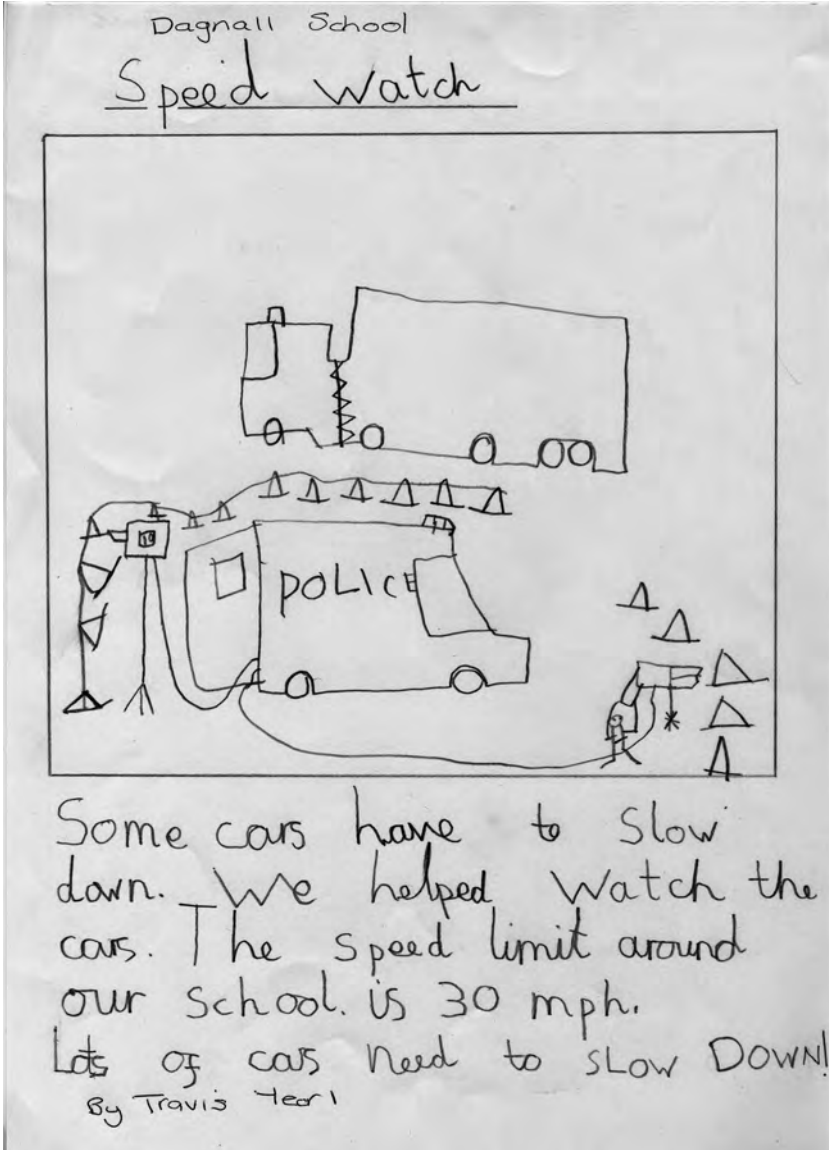 Dagnall School
Speed Watch
POLICE
Some cars have to slow
down. We helped watch the
cars. The speed limit around
our school. is 30 mph.
Lots of cars need to SLOW DOWN!
By Travis Year 1